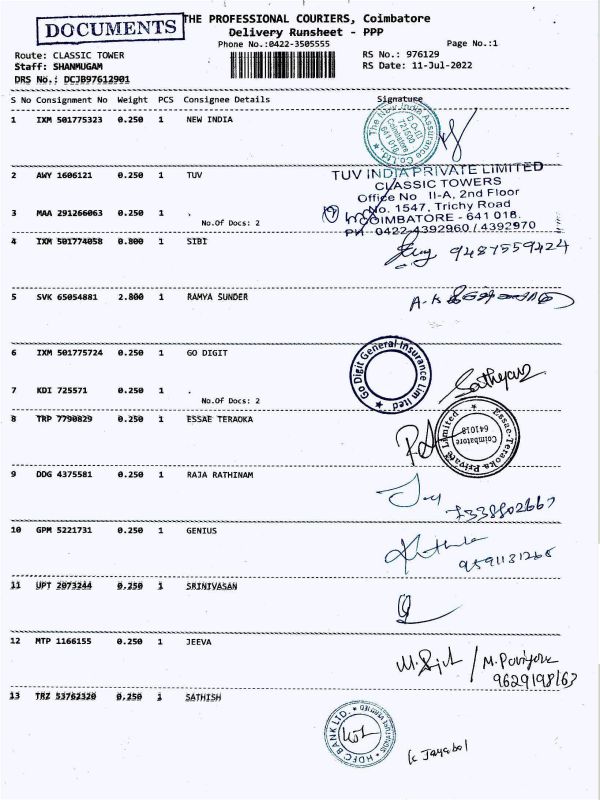 DOCUMENTS
THE PROFESSIONAL COURIERS, Coimbatore
Delivery Runsheet - PPP
Phone No.:0422-3505555
Page No.:1
Route: CLASSIC TOWER
RS No.: 976129
Staff: SHANMUGAM
RS Date: 11-Jul-2022
DRS No.: DCJB97612901
S No Consignment No Weight PCS Consignee Details Signature
1 IXM 501775323 0.250 1 NEW INDIA
The New India Assurance Co. Ltd.
D.O-III
721600
Coimbatore
641 018
2 AWY 1606121 0.250 1 TUV
TUV INDIA PRIVATE LIMITED
CLASSIC TOWERS
Office No II-A, 2nd Floor
No. 1547, Trichy Road
COIMBATORE - 641 018.
PH 0422-4392960 / 4392970
3 MAA 291266063 0.250 1 .
No.Of Docs: 2
4 IXM 501774058 0.800 1 SIBI
9487559424
5 SVK 65054881 2.800 1 RAMYA SUNDER
A-K
6 IXM 501775724 0.250 1 GO DIGIT
Go Digit General Insurance Limited
7 KDI 725571 0.250 1 .
No.Of Docs: 2
8 TRP 7790829 0.250 1 ESSAE TERAOKA
Essae-Teraoka Private Limited
Coimbatore
641018
9 DDG 4375581 0.250 1 RAJA RATHINAM
7338802667
10 GPM 5221731 0.250 1 GENIUS
9591131268
11 UPT 2073244 0.250 1 SRINIVASAN
12 MTP 1166155 0.250 1 JEEVA
9629198163
13 TRZ 53762320 0.250 1 SATHISH
HDFC BANK LTD.